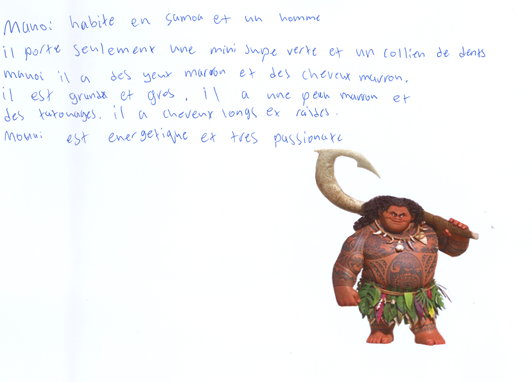 Manoi habite en samoa et un homme
il porte seulement une mini Jupe verte et un collien de dents
manoi il a des yeux marron et des cheveux marron.
il est grande et gros. il a une peau marron et
des tatouages. il a cheveux longs et raides.
Moaui est energetique et tres passionate